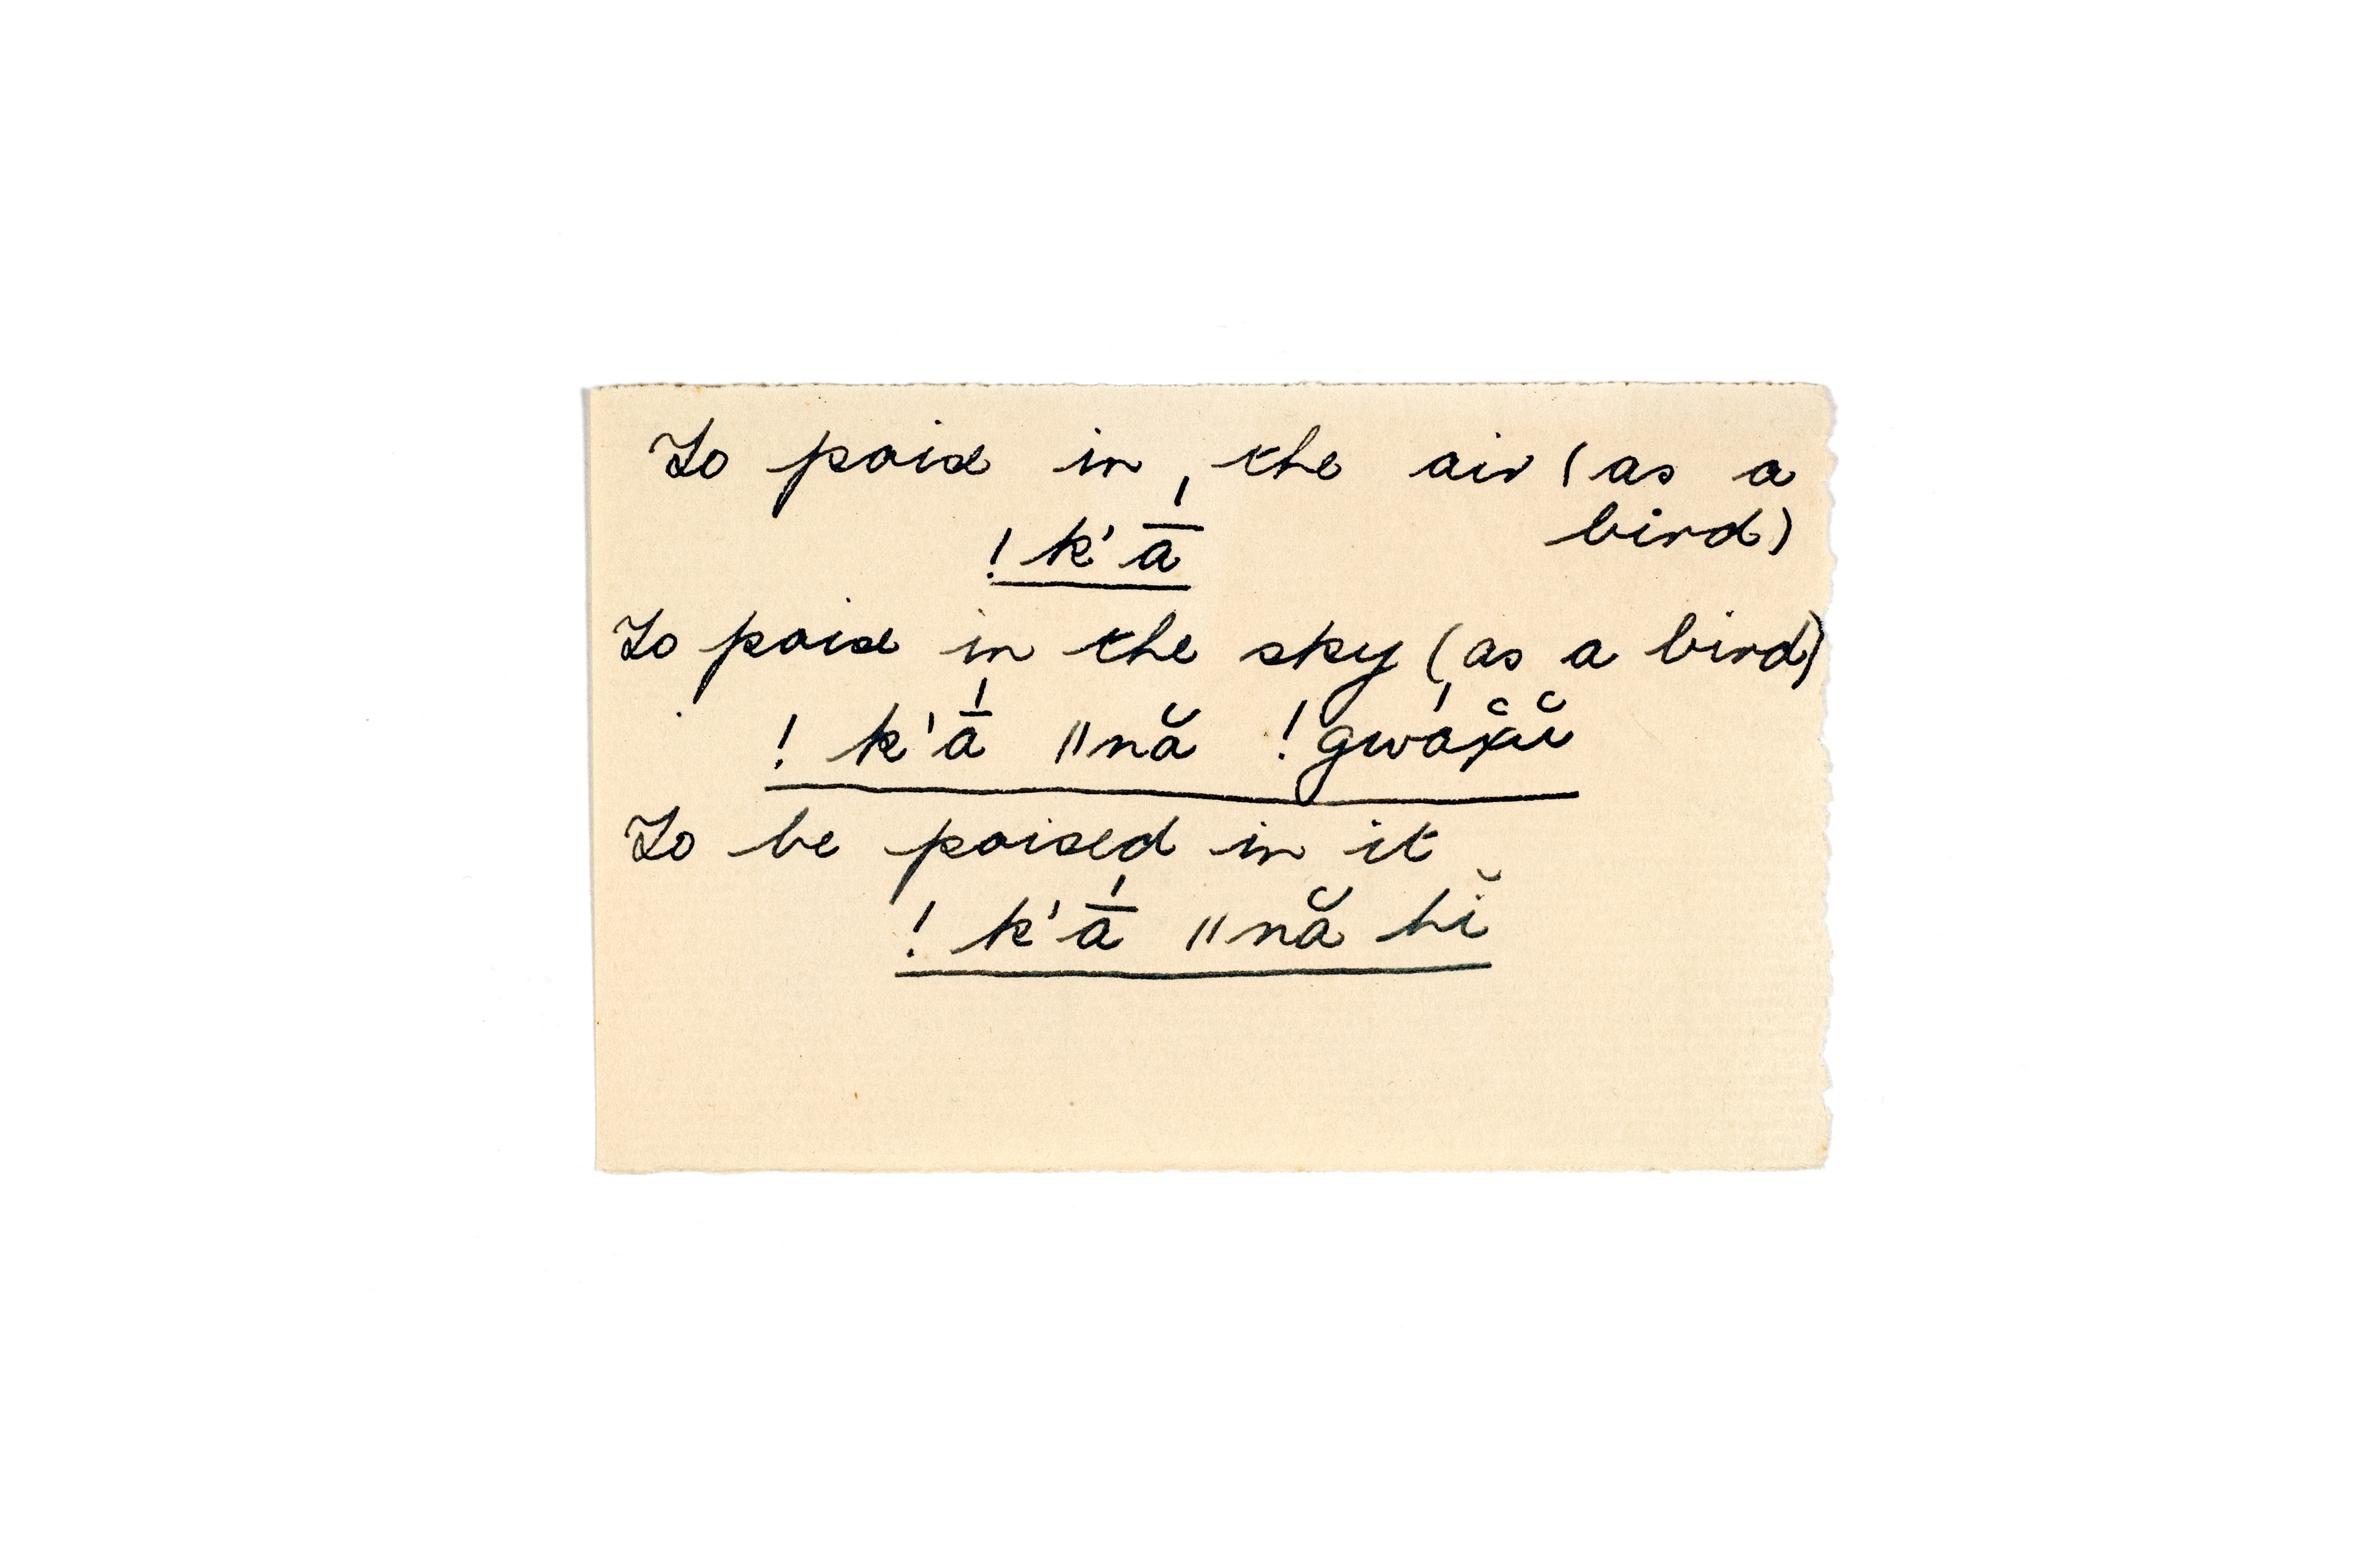 To poise in the air (as a
bird)
! k' ā́
To poise in the sky (as a bird)
! k' ā́ ǁ nă ! gwáx̆ŭ
To be poised in it
! k' ā́ ǁ nă hĭ